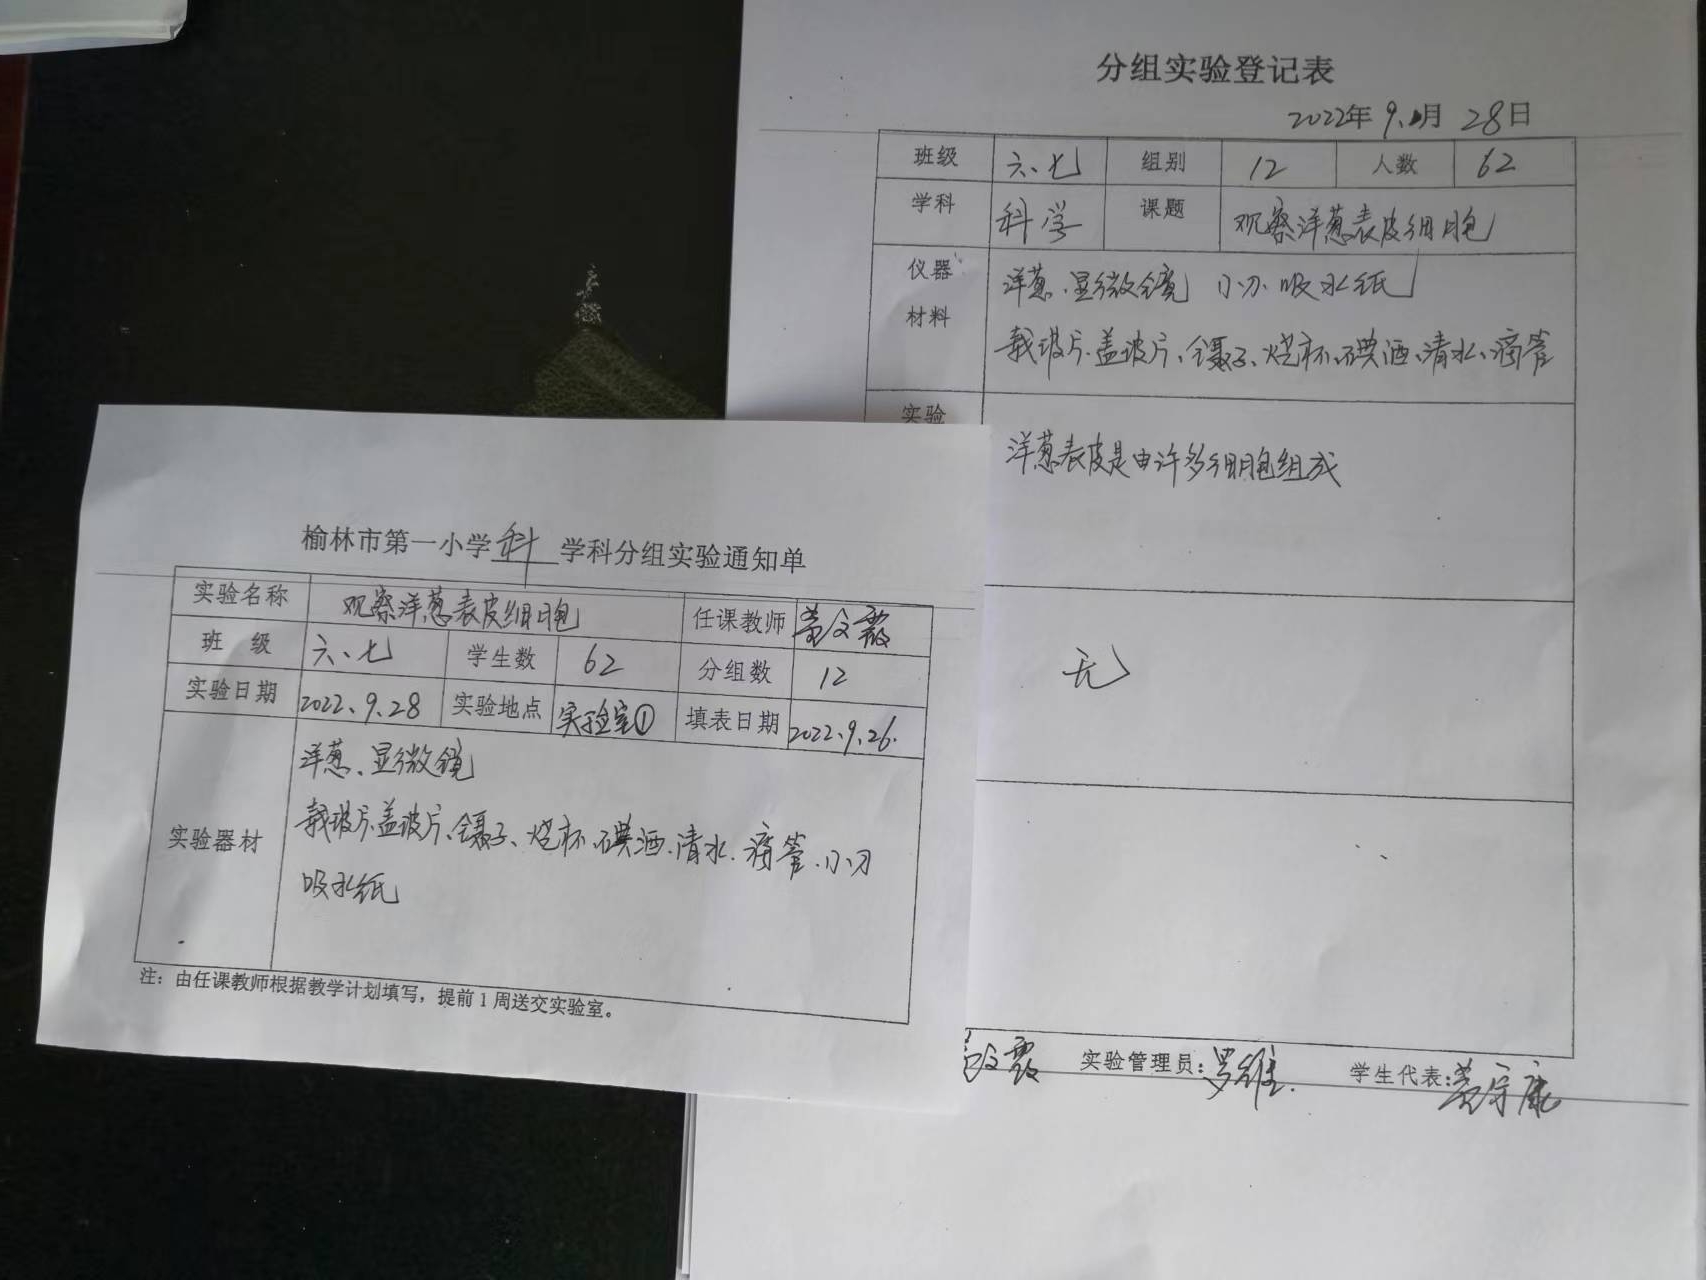 分组实验登记表
2022年 9.月 28日
班级 六、七 组别 12 人数 62
学科 科学 课题 观察洋葱表皮细胞
仪器 洋葱、显微镜 小刀、吸水纸
材料 载玻片、盖玻片、镊子、烧杯、碘酒、清水、滴管
实验
洋葱表皮是由许多细胞组成
无
霞 实验管理员:罗维. 学生代表:康
榆林市第一小学科学科分组实验通知单
实验名称 观察洋葱表皮细胞 任课教师 文霞
班 级 六、七 学生数 62 分组数 12
实验日期 2022、9、28 实验地点 实验室① 填表日期 2022、9、26.
洋葱、显微镜
实验器材 载玻片、盖玻片、镊子、烧杯、碘酒、清水、滴管、小刀
吸水纸
注：由任课教师根据教学计划填写，提前1周送交实验室。